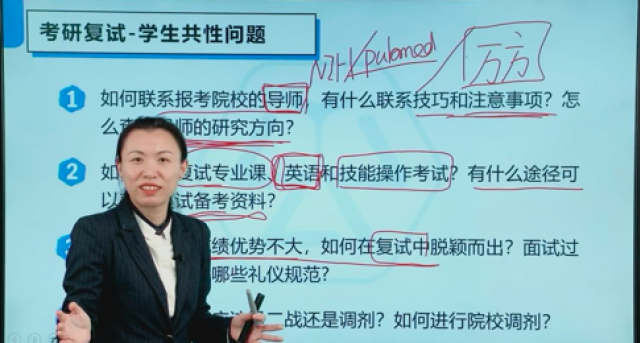 考研复试-学生共性问题
NIH/pubmed 万方
1 如何联系报考院校的导师，有什么联系技巧和注意事项？怎
么 师的研究方向？
2 如 复试专业课、英语和技能操作考试？有什么途径可
以 试备考资料？
绩优势不大，如何在复试中脱颖而出？面试过
哪些礼仪规范？
二战还是调剂？如何进行院校调剂？